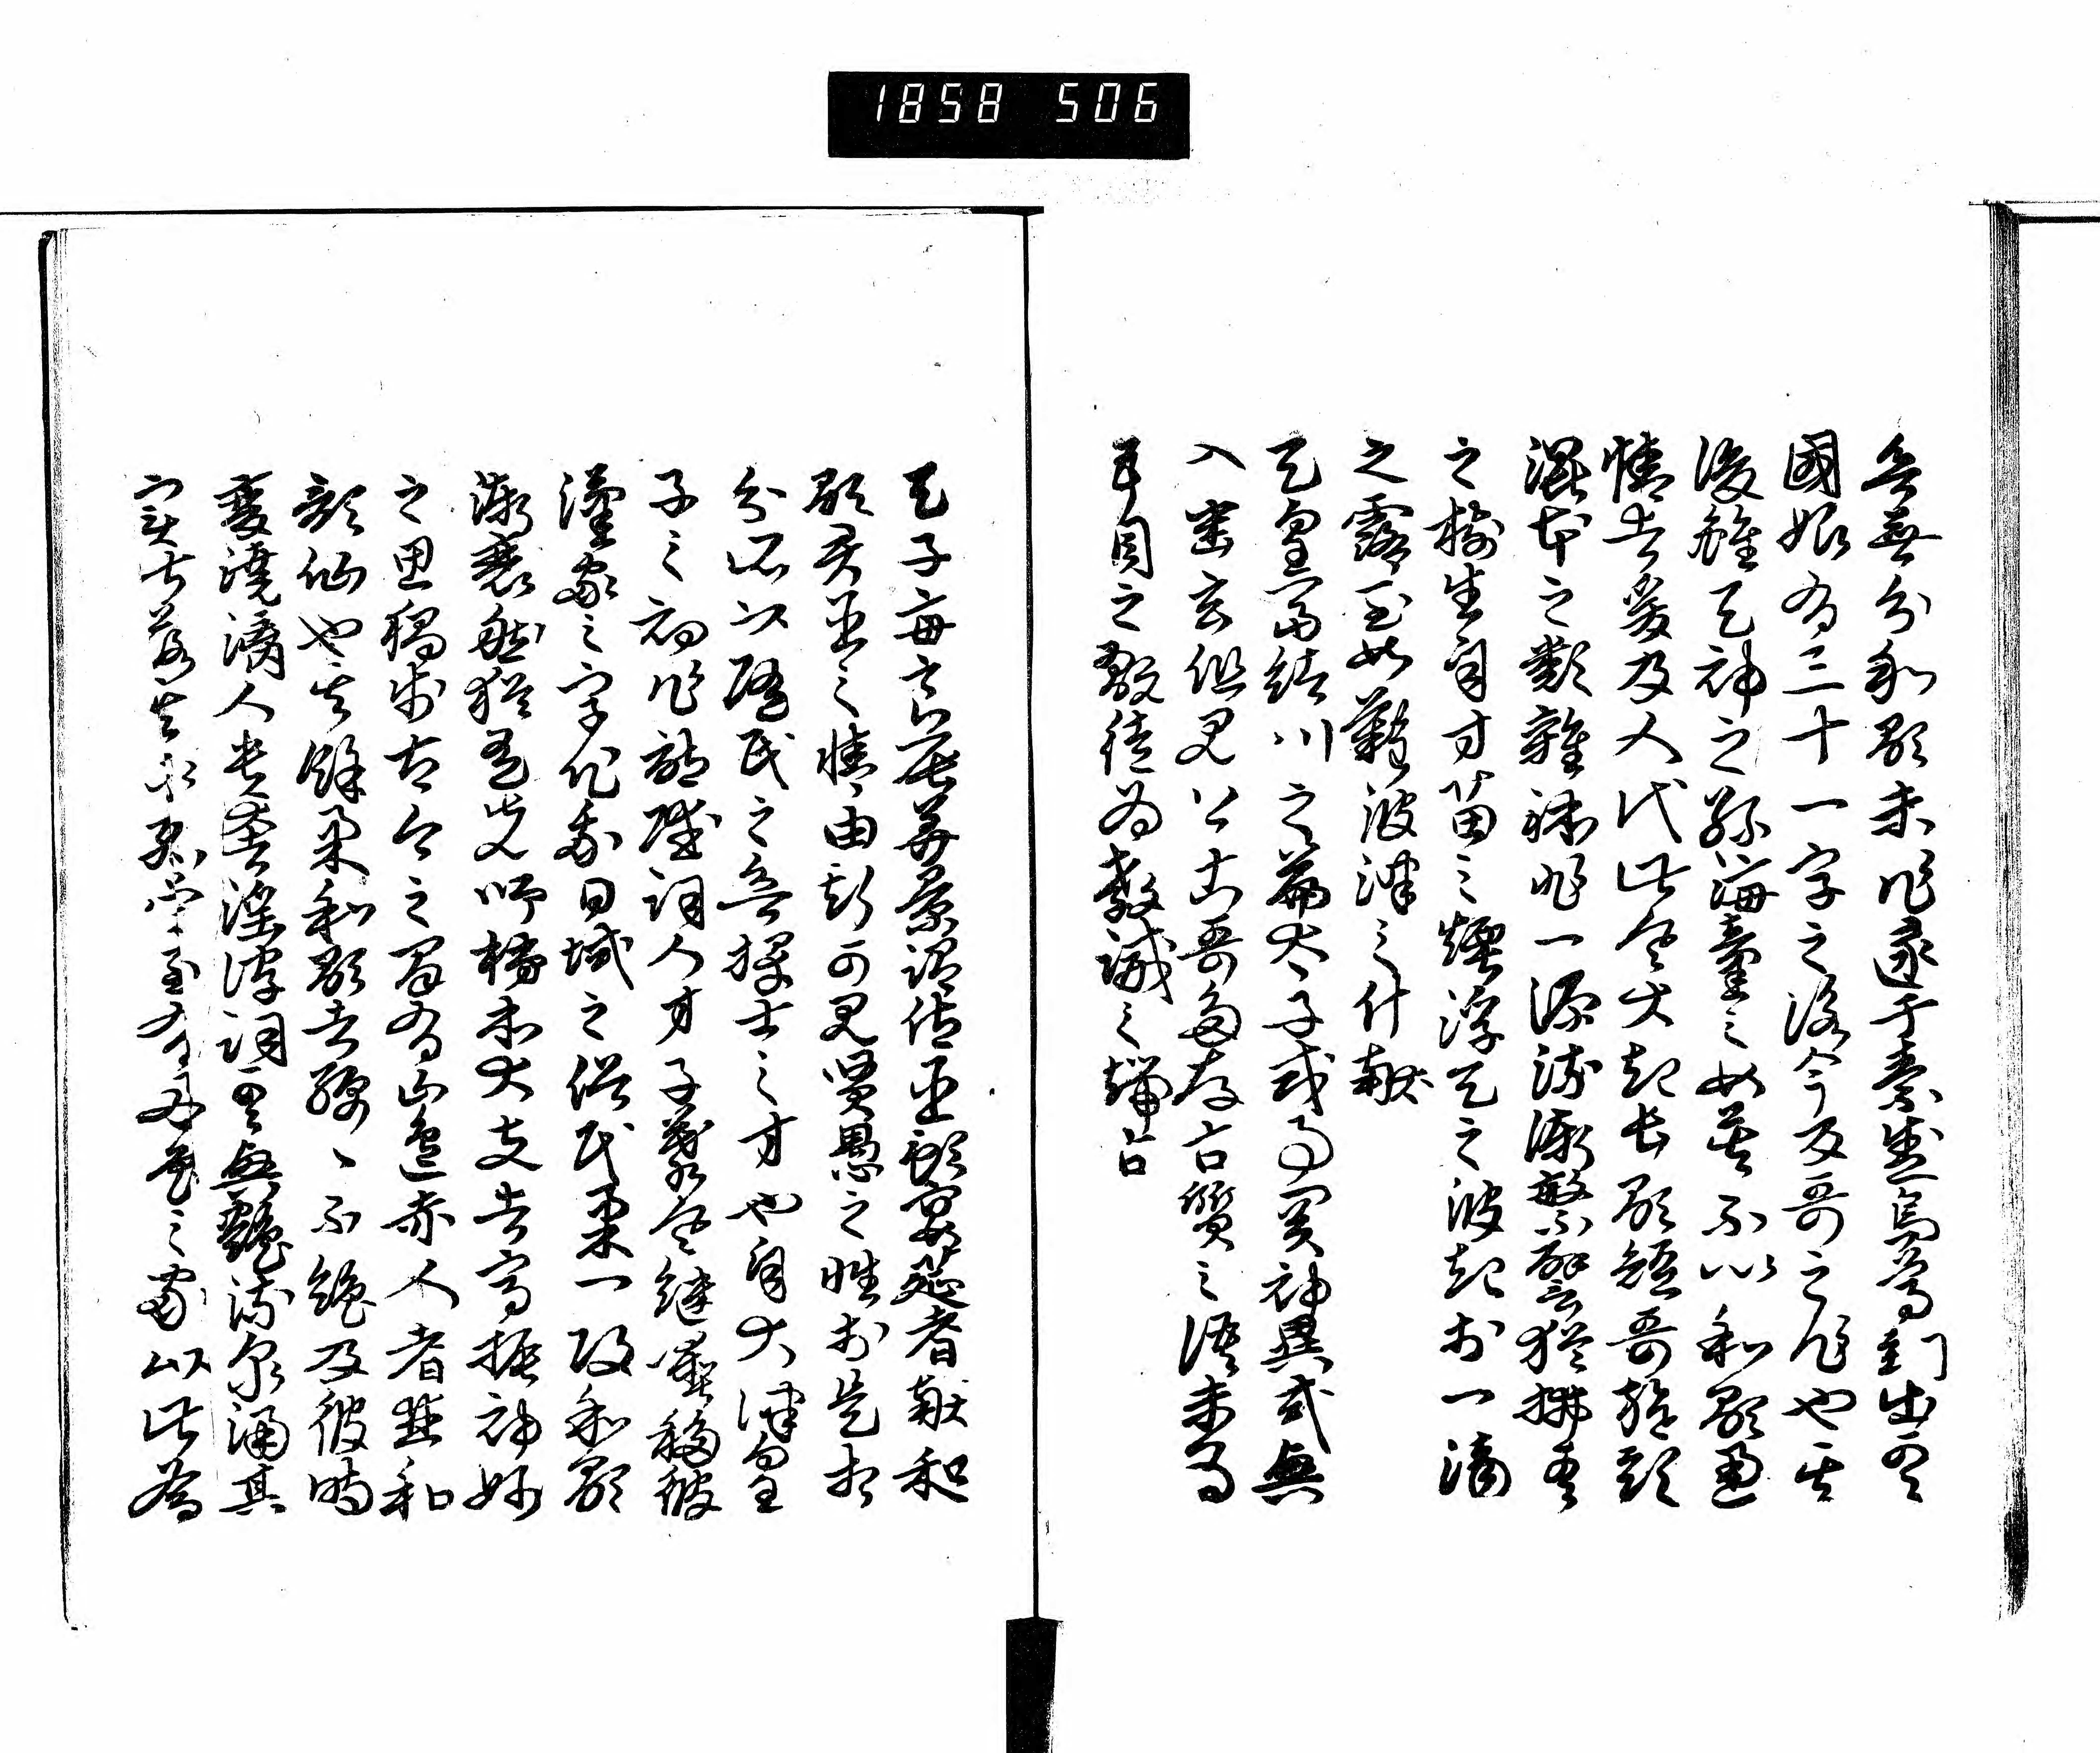 欲無分和歌未作逮于素盞烏尊到出雲
國始有三十一字之詠今反哥之作也其
後雖天神之孫海童之女莫不以和歌通
情者爰及人代此風大起長歌短哥旋頭
混本之類雜躰非一源流漸繁譬猶拂雲
之樹生自寸苗之煙浮天之波起於一滴
之露至如難波津之什献
天皇富緒川之篇太子或事関神異或興
入幽玄但見上古哥多存古質之語未為
耳目之翫徒為教誡之端古
天子毎良辰美景詔侍臣預宴莚者献和
歌君臣之情由斯可見賢愚之性於是相
分所以随民之欲擇士之才也自大津皇
子之初作詩賦詞人才子慕風継塵移彼
漢家之字化我日域之俗民業一改和歌
漸衰然猶有先師柿本大夫者高振神妙
之思独歩古今之間有山邊赤人者並和
歌仙也其餘業和歌者綿〻不絶及彼時
變澆漓人貴奢淫浮詞雲興艶流泉涌其
実皆落其花孤榮至有好色之家以此為
1858 506